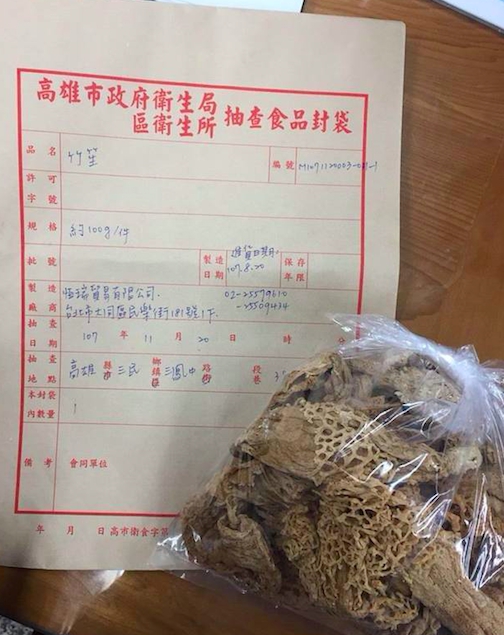 高雄市政府衛生局
區衛生所 抽查食品封袋
品名 竹笙 編號 M1071120003-
許可字號
規格 約100g/件
批號 製造日期 進貨日期 107.8.20 保存年限
製造廠商 恒瑞貿易有限公司. 02-25579610
台北市大同區民樂街181號1F. -25509434
抽查日期 107 年 11 月 20 日 時 分
抽查地點 高雄 縣市 三民 鄉鎮區 三鳳中 路街 段巷
本封袋內數量 1
備考 會同單位
年 月 日高市衛食字第